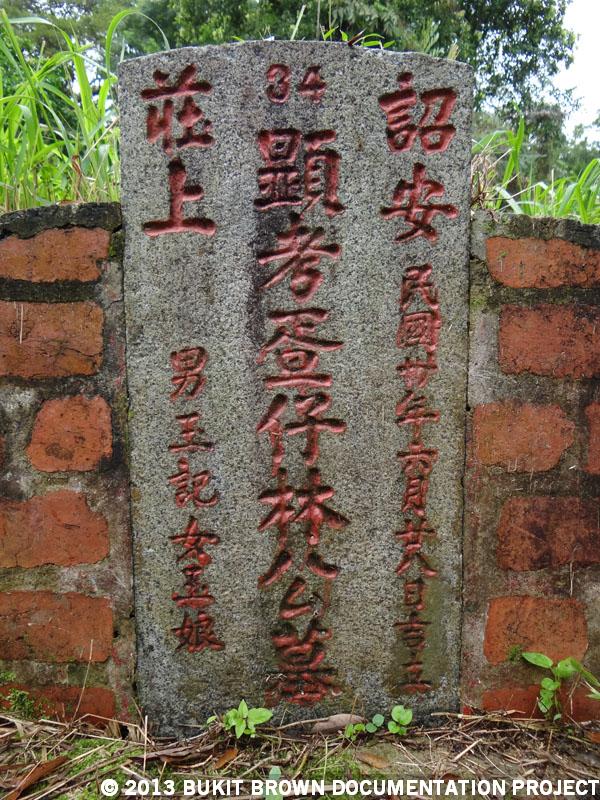 詔安 民國廿年六月廿八日吉立
34
顯考蛋仔林公墓
莊上 男玉記女玉娘
© 2013 BUKIT BROWN DOCUMENTATION PROJECT